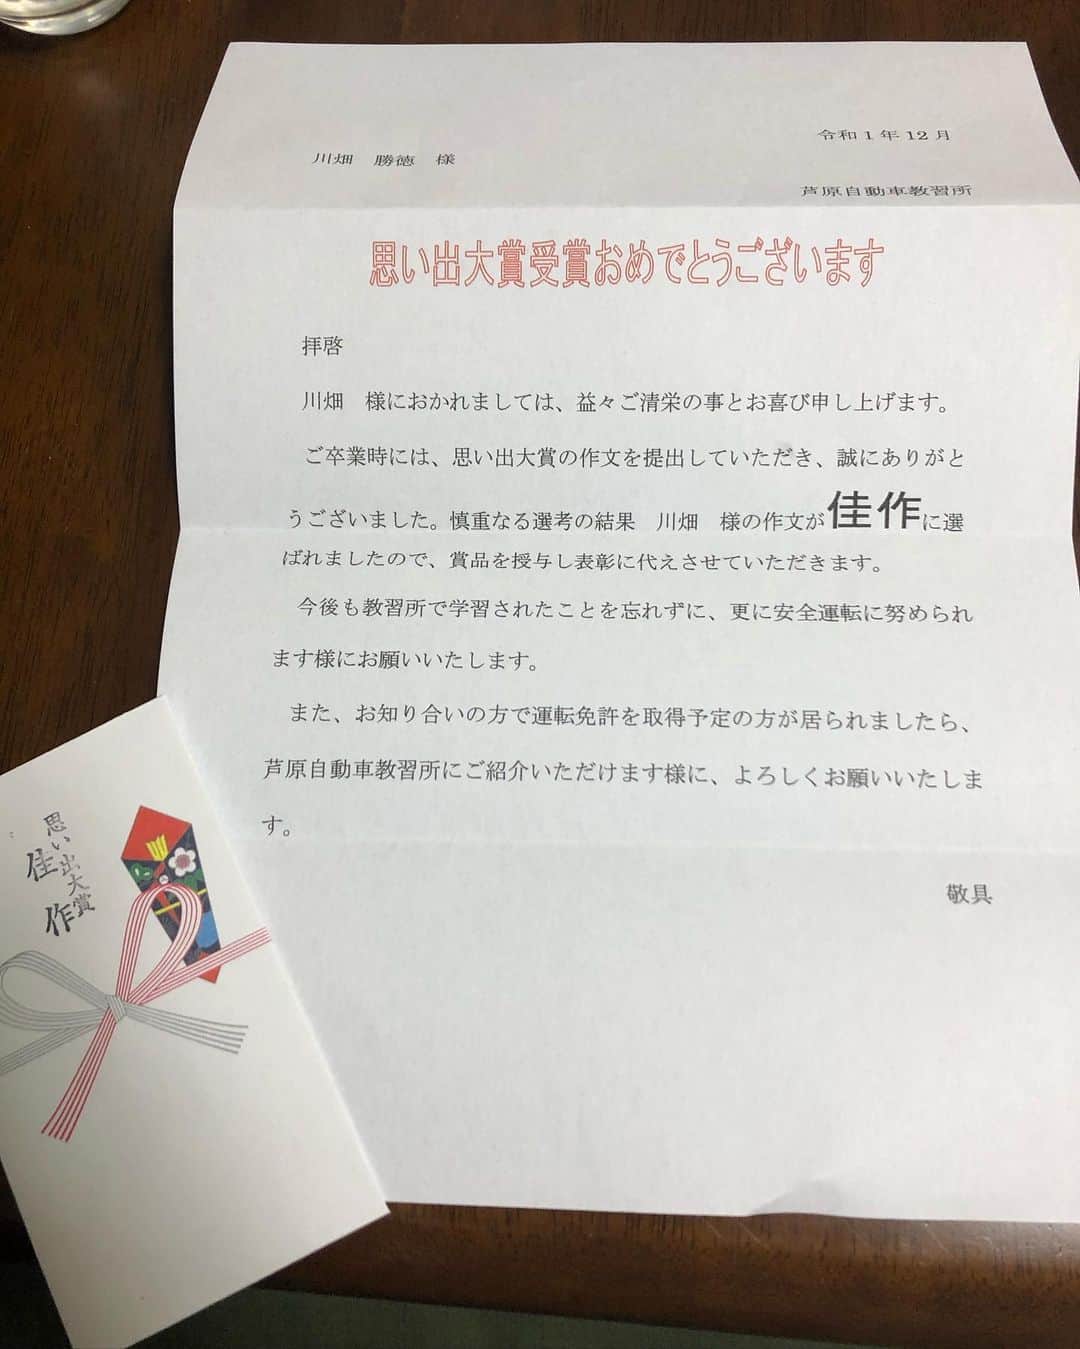 令和1年12月
川畑　勝徳　様
芦原自動車教習所
思い出大賞受賞おめでとうございます
拝啓
川畑　様におかれましては、益々ご清栄の事とお喜び申し上げます。
ご卒業時には、思い出大賞の作文を提出していただき、誠にありがと
うございました。慎重なる選考の結果　川畑　様の作文が佳作に選
ばれましたので、賞品を授与し表彰に代えさせていただきます。
今後も教習所で学習されたことを忘れずに、更に安全運転に努められ
ます様にお願いいたします。
また、お知り合いの方で運転免許を取得予定の方が居られましたら、
芦原自動車教習所にご紹介いただけます様に、よろしくお願いいたしま
す。
敬具
思い出大賞
佳作